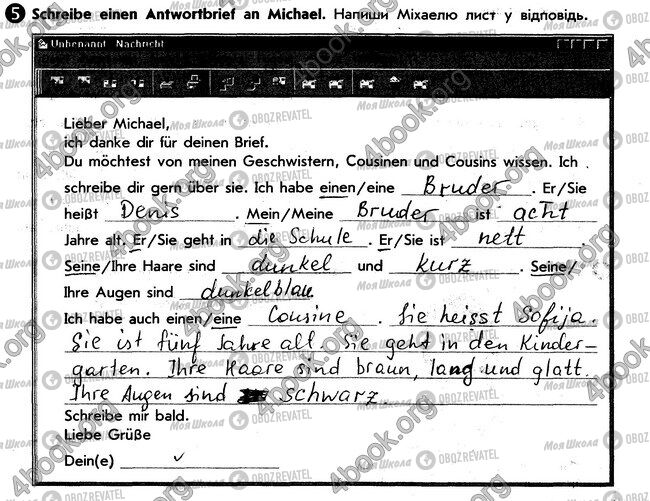 5 Schreibe einen Antwortbrief an Michael. Напиши Міхаелю лист у відповідь.
Unbenannt Nachricht
Lieber Michael,
ich danke dir für deinen Brief.
Du möchtest von meinen Geschwistern, Cousinen und Cousins wissen. Ich
schreibe dir gern über sie. Ich habe einen/eine Bruder. Er/Sie
heißt Denis. Mein/Meine Bruder ist acht
Jahre alt. Er/Sie geht in die Schule. Er/Sie ist nett
Seine/Ihre Haare sind dunkel und kurz. Seine/
Ihre Augen sind dunkelblau
Ich habe auch einen/eine Cousine. Sie heisst Sofija.
Sie ist fünf Jahre all. Sie geht in den Kinder-
garten. Ihre Haare sind braun, lang und glatt.
Ihre Augen sind schwarz.
Schreibe mir bald.
Liebe Grüße
Dein(e)
4book.org
Моя Школа OBOZREVATEL